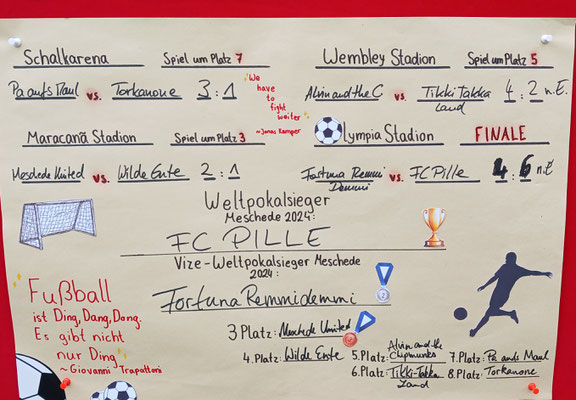 Schalkarena Spiel um Platz 7
Pa aufs Maul vs. Torkanone 3 : 1
"We
have
to
fight
weiter"
~Jonas Kamper
Wembley Stadion Spiel um Platz 5
Alvin and the C vs. Tikki Takka Land 4 : 2 n.E.
Maracanã Stadion Spiel um Platz 3
Meschede United vs. Wilde Ente 2 : 1
Olympia Stadion FINALE
Fortuna Remmi Demmi vs. FC Pille 4 : 6 n.E
Weltpokalsieger
Meschede 2024:
FC PILLE
Vize-Weltpokalsieger Meschede
2024:
Fortuna Remmidemmi
3 Platz: Meschede United
4. Platz: Wilde Ente
5. Platz: Alvin and the Chipmunks
6. Platz: Tikki-Takka Land
7. Platz: Pa aufs Maul
8. Platz: Torkanone
Fußball
ist Ding, Dang, Dong.
Es gibt nicht
nur Ding
~Giovanni Trapattoni